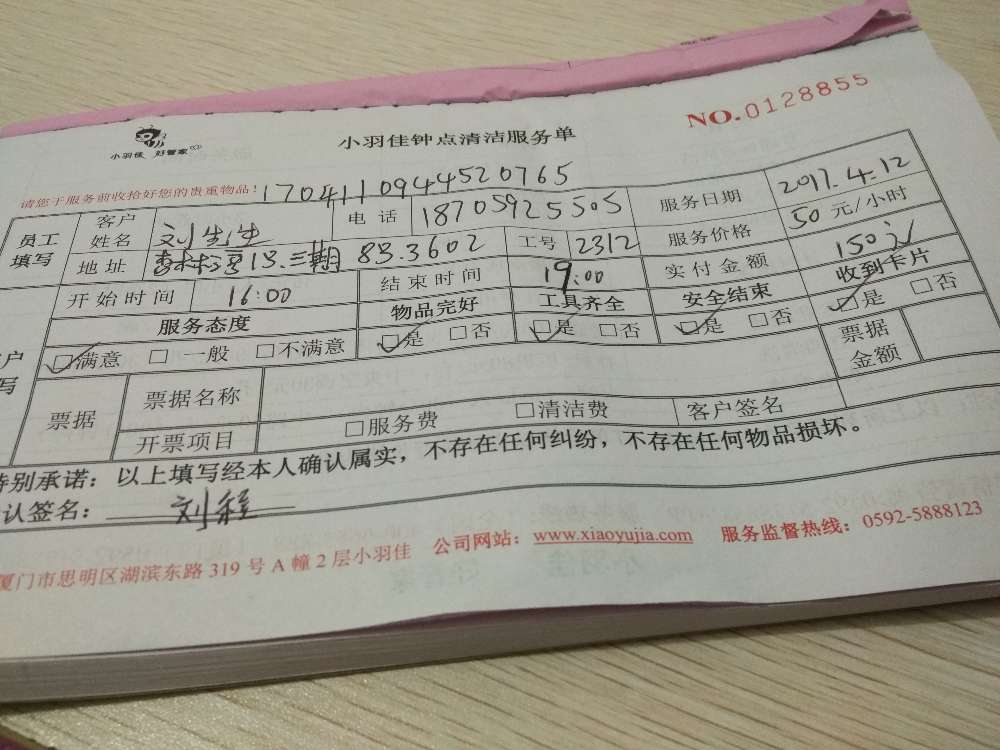 小羽佳 好管家
小羽佳钟点清洁服务单
NO.0128855
请您于服务前收拾好您的贵重物品!
1704110944520765
员工填写 客户姓名 刘先生 电话 18705925505 服务日期 2017.4.12
地址 三期 83.3602 工号 2312 服务价格 50元/小时
开始时间 16:00 结束时间 19:00 实付金额 150元
服务态度 物品完好 工具齐全 安全结束 收到卡片
户写 □满意 □一般 □不满意 □是 □否 □是 □否 □是 □否 □是 □否
票据 票据名称 票据金额
开票项目 □服务费 □清洁费 客户签名
特别承诺：以上填写经本人确认属实，不存在任何纠纷，不存在任何物品损坏。
认签名：刘程
厦门市思明区湖滨东路319号A幢2层小羽佳 公司网站：www.xiaoyujia.com 服务监督热线：0592-5888123